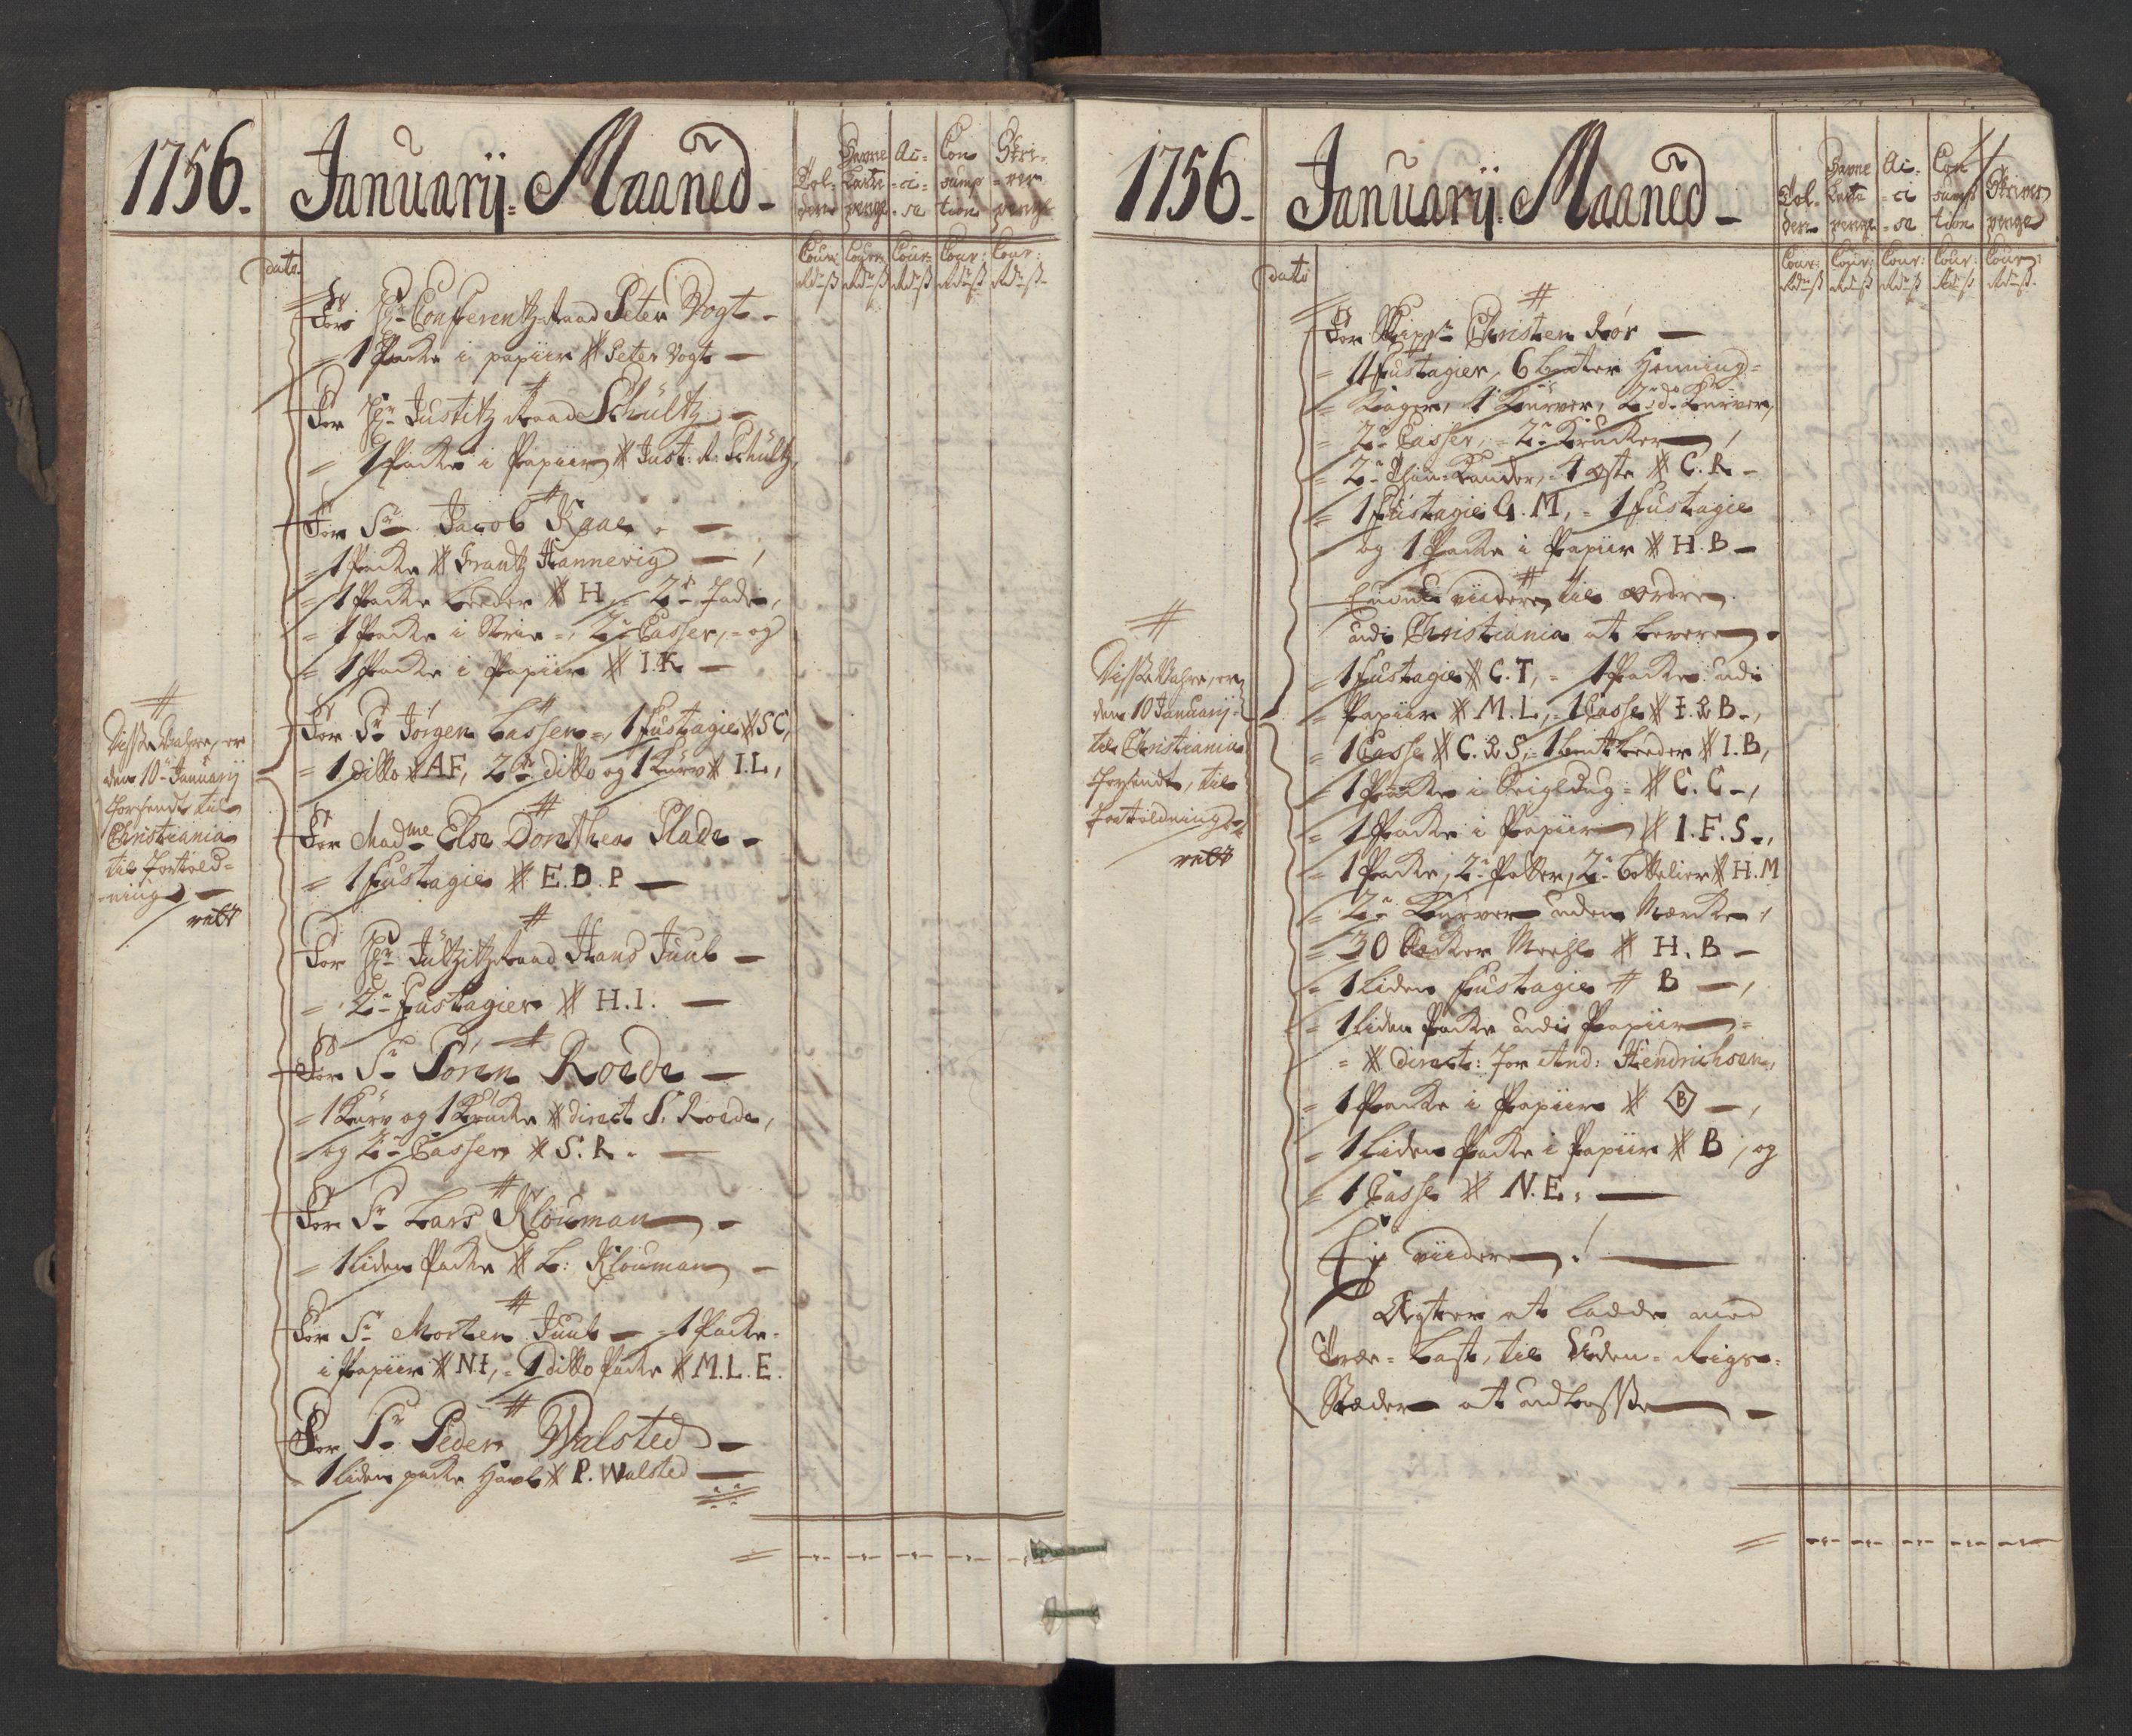 1756.
Januarij Maaned -
Tol-
dern
Havne
Laste
penge
Ac-
ci-
se
Con
sump
tion
Skri-
ver
penge
Cour: Cour: Cour: Cour: Cour:
Rd ß Rd ß Rd ß Rd ß Rd ß
dato
For Hr Conferentz Raad Peter Vogt -
= 1 Pakke i papiir # Peter Vogt -
For Hr Justitz Raad Schültz -
= 1 Pakke i Papiir # Just: R: Schültz,
For Sr Jacob Kaae. -
= 1 Pakke # Frantz Hannevig - /
= 1 Pakke Leeder # H = 2de
= 1 Pakke i Strie =, 2 Casser, = og
= 1 Pakke i Papiir # I.K -
For Sr Jørgen Lassen =, 1 Fustagie # SC,
= 1 ditto # AF, 2de ditto og 1 Kurv # I.L,
For Madme Else Dorethea Plade -
= 1 Fustagie # E.D.P -
For Hr Jutzitz Raad Hans Juul -
= 2 Fustagier # H.I. -
For Sr Søren Roede -
= 1 Kurv og 1 Krukke # direct S. Roede,
og 2 Casser # S.R. -
For Sr Lars Klouman -
= 1 Liden Pakke # L: Klouman -
For Sr Morten Juul - = 1 Pakke
i Papiir # N.I, = 1 ditto Pakke # M.L.E.
For Sr Peder Walsted -
1 liden pakke # P. Walsted -
Disse Vahre, er
den 10 Januarij
forsendt til
Christiania
til fortold-
ning -
1756.
Januarij Maaned -
Tol-
dern
Havne
Laste
penge
Ac-
ci
se
Con
sump
tion
Skriver
penge
Cour: Cour: Cour: Cour: Cour:
Rd ß Rd ß Rd ß Rd ß Rd ß
dato
For Skippr Christen Rør -
= 11 Fustagier, 6 Henning-
= 1 Kurver, 2 do Kurver,
= 2 Casser, = 2 Krukker, /
= 2 = 1 Oste # C.R -
= 1 Fustagie G.M, = 1 Fustagie
og 1 Pakke i Papiir # H.B -
viidere til ordre
udi Christiania at levere.
= 1 Fustagie # C.T, = 1 Pakke udi
= Papiir # M.L, = 1 Casse # I.&B -,
= 1 Casse # C.&S, = 1 Leeder # I.B,
= 1 Pakke i Seigldug = # C.C -,
= 1 Pakke i Papiir # I.F.S -,
= 1 Pakke, 2 Potter, 2 Bottelier # H.M
= 2 Kurver uden Mærke, /
= 30 Sækker Meehl # H.B -
= 1 Liden Fustagie # B -,
= 1 Liden Pakke udi Papiir =
= # direct: for And: Hendrichsen,
= 1 Pakke i Papiir # B -,
= 1 Liden Pakke i Papiir # B, og
= 1 Casse # N.E. -
Ej viidere. -
Agter at ladde med
Træe-Last, til Uden-Rigs-
Stæder at udlosse -
Disse Vahre, er
den 10 Januarij
til Christiania
forsendt, til
fortoldning